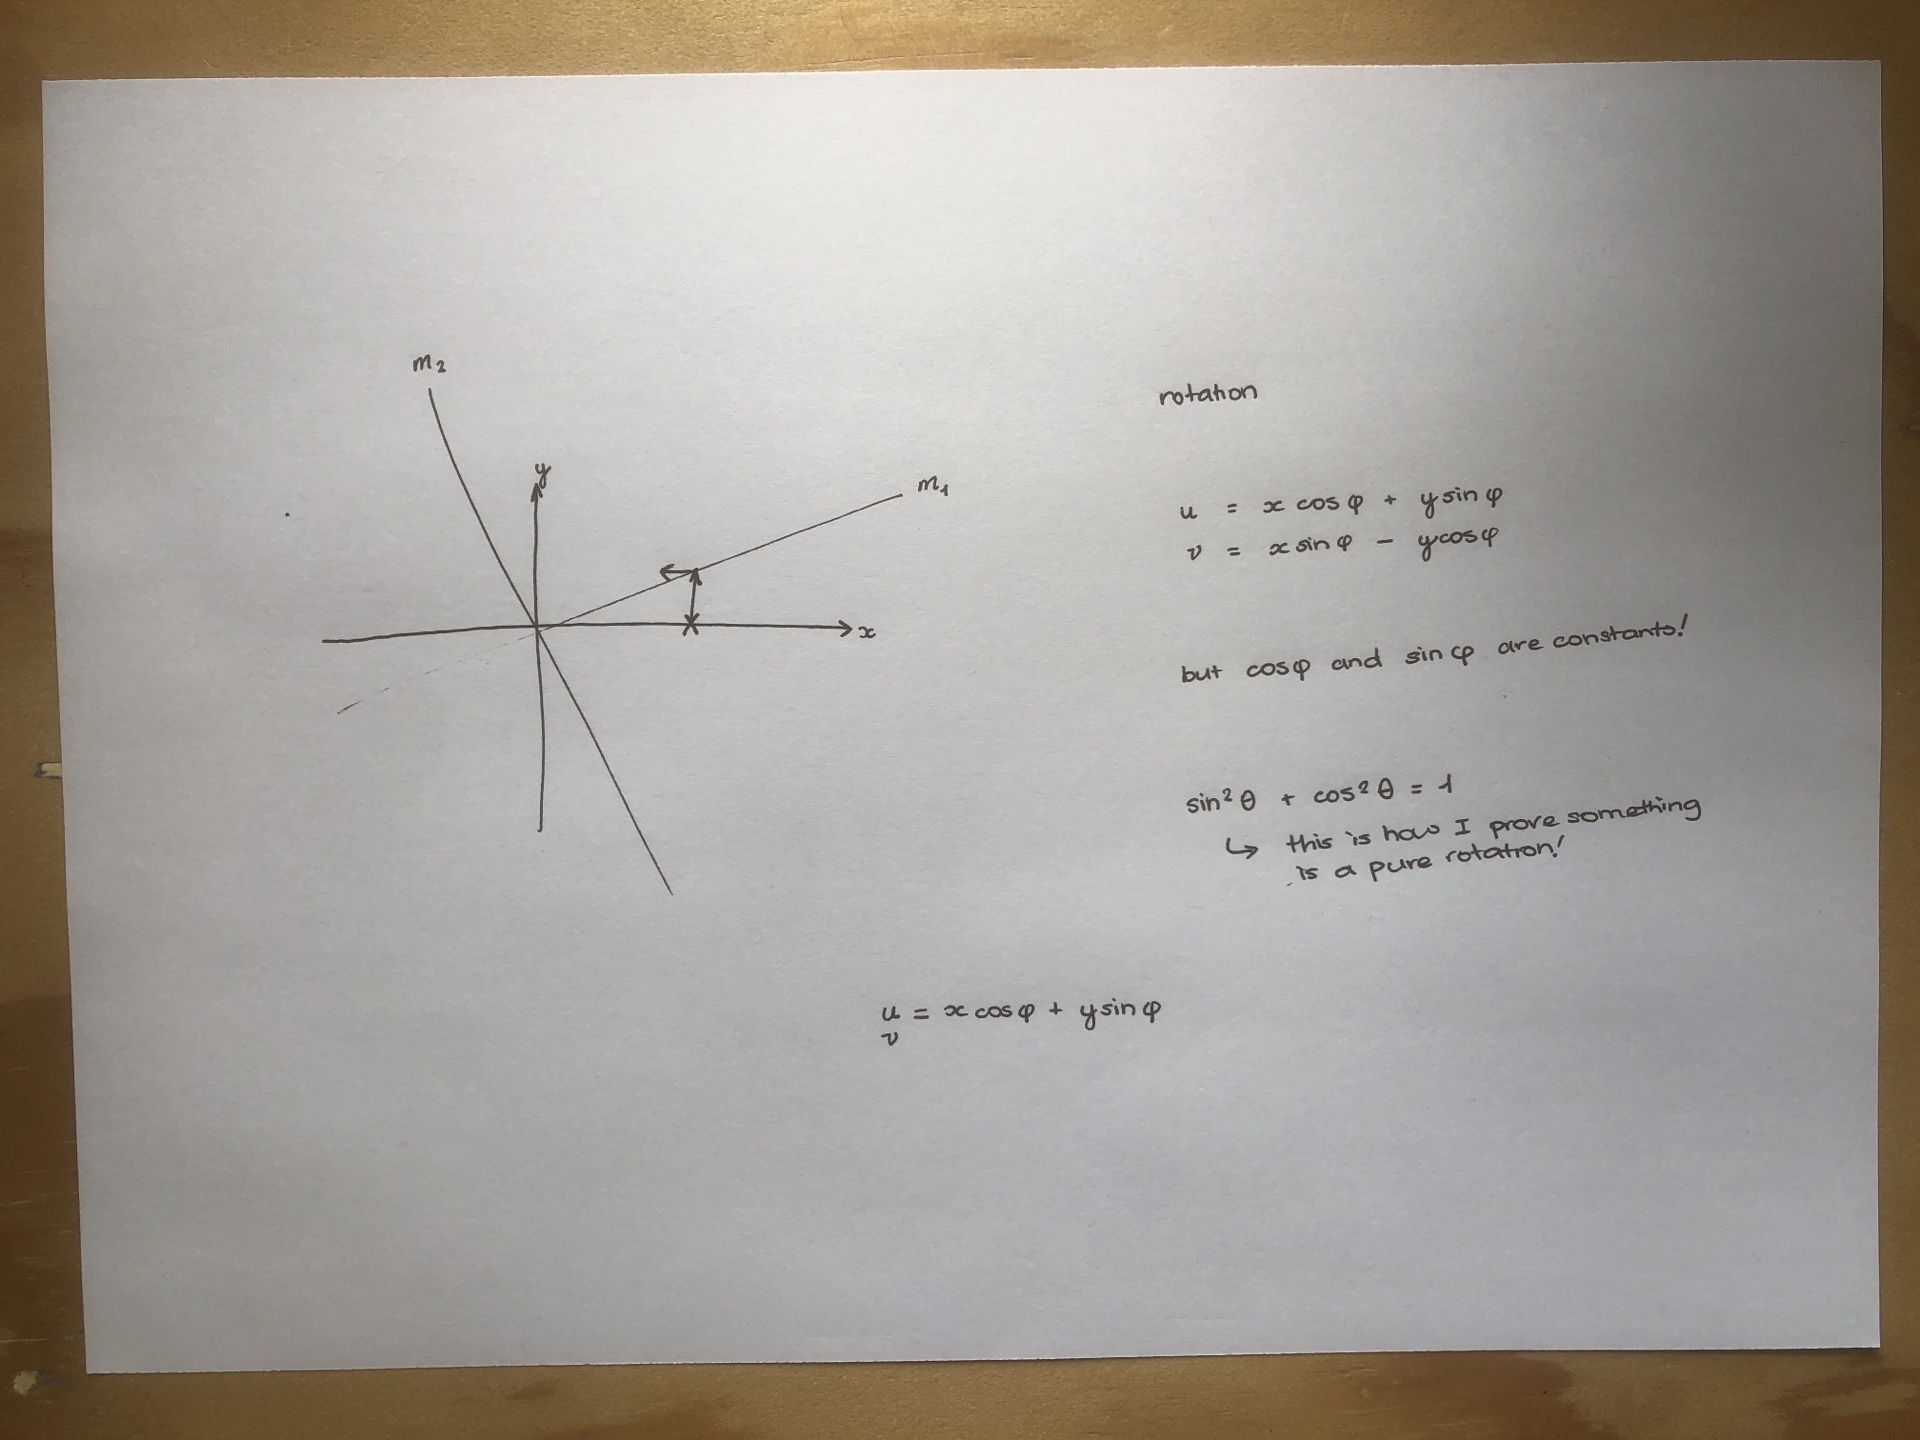 m₂
y
m₁
x
rotation
u = x cos φ + y sin φ
v = x sin φ − y cos φ
but cos φ and sin φ are constants!
sin² θ + cos² θ = 1
↳ this is how I prove something
is a pure rotation!
u = x cos φ + y sin φ
v